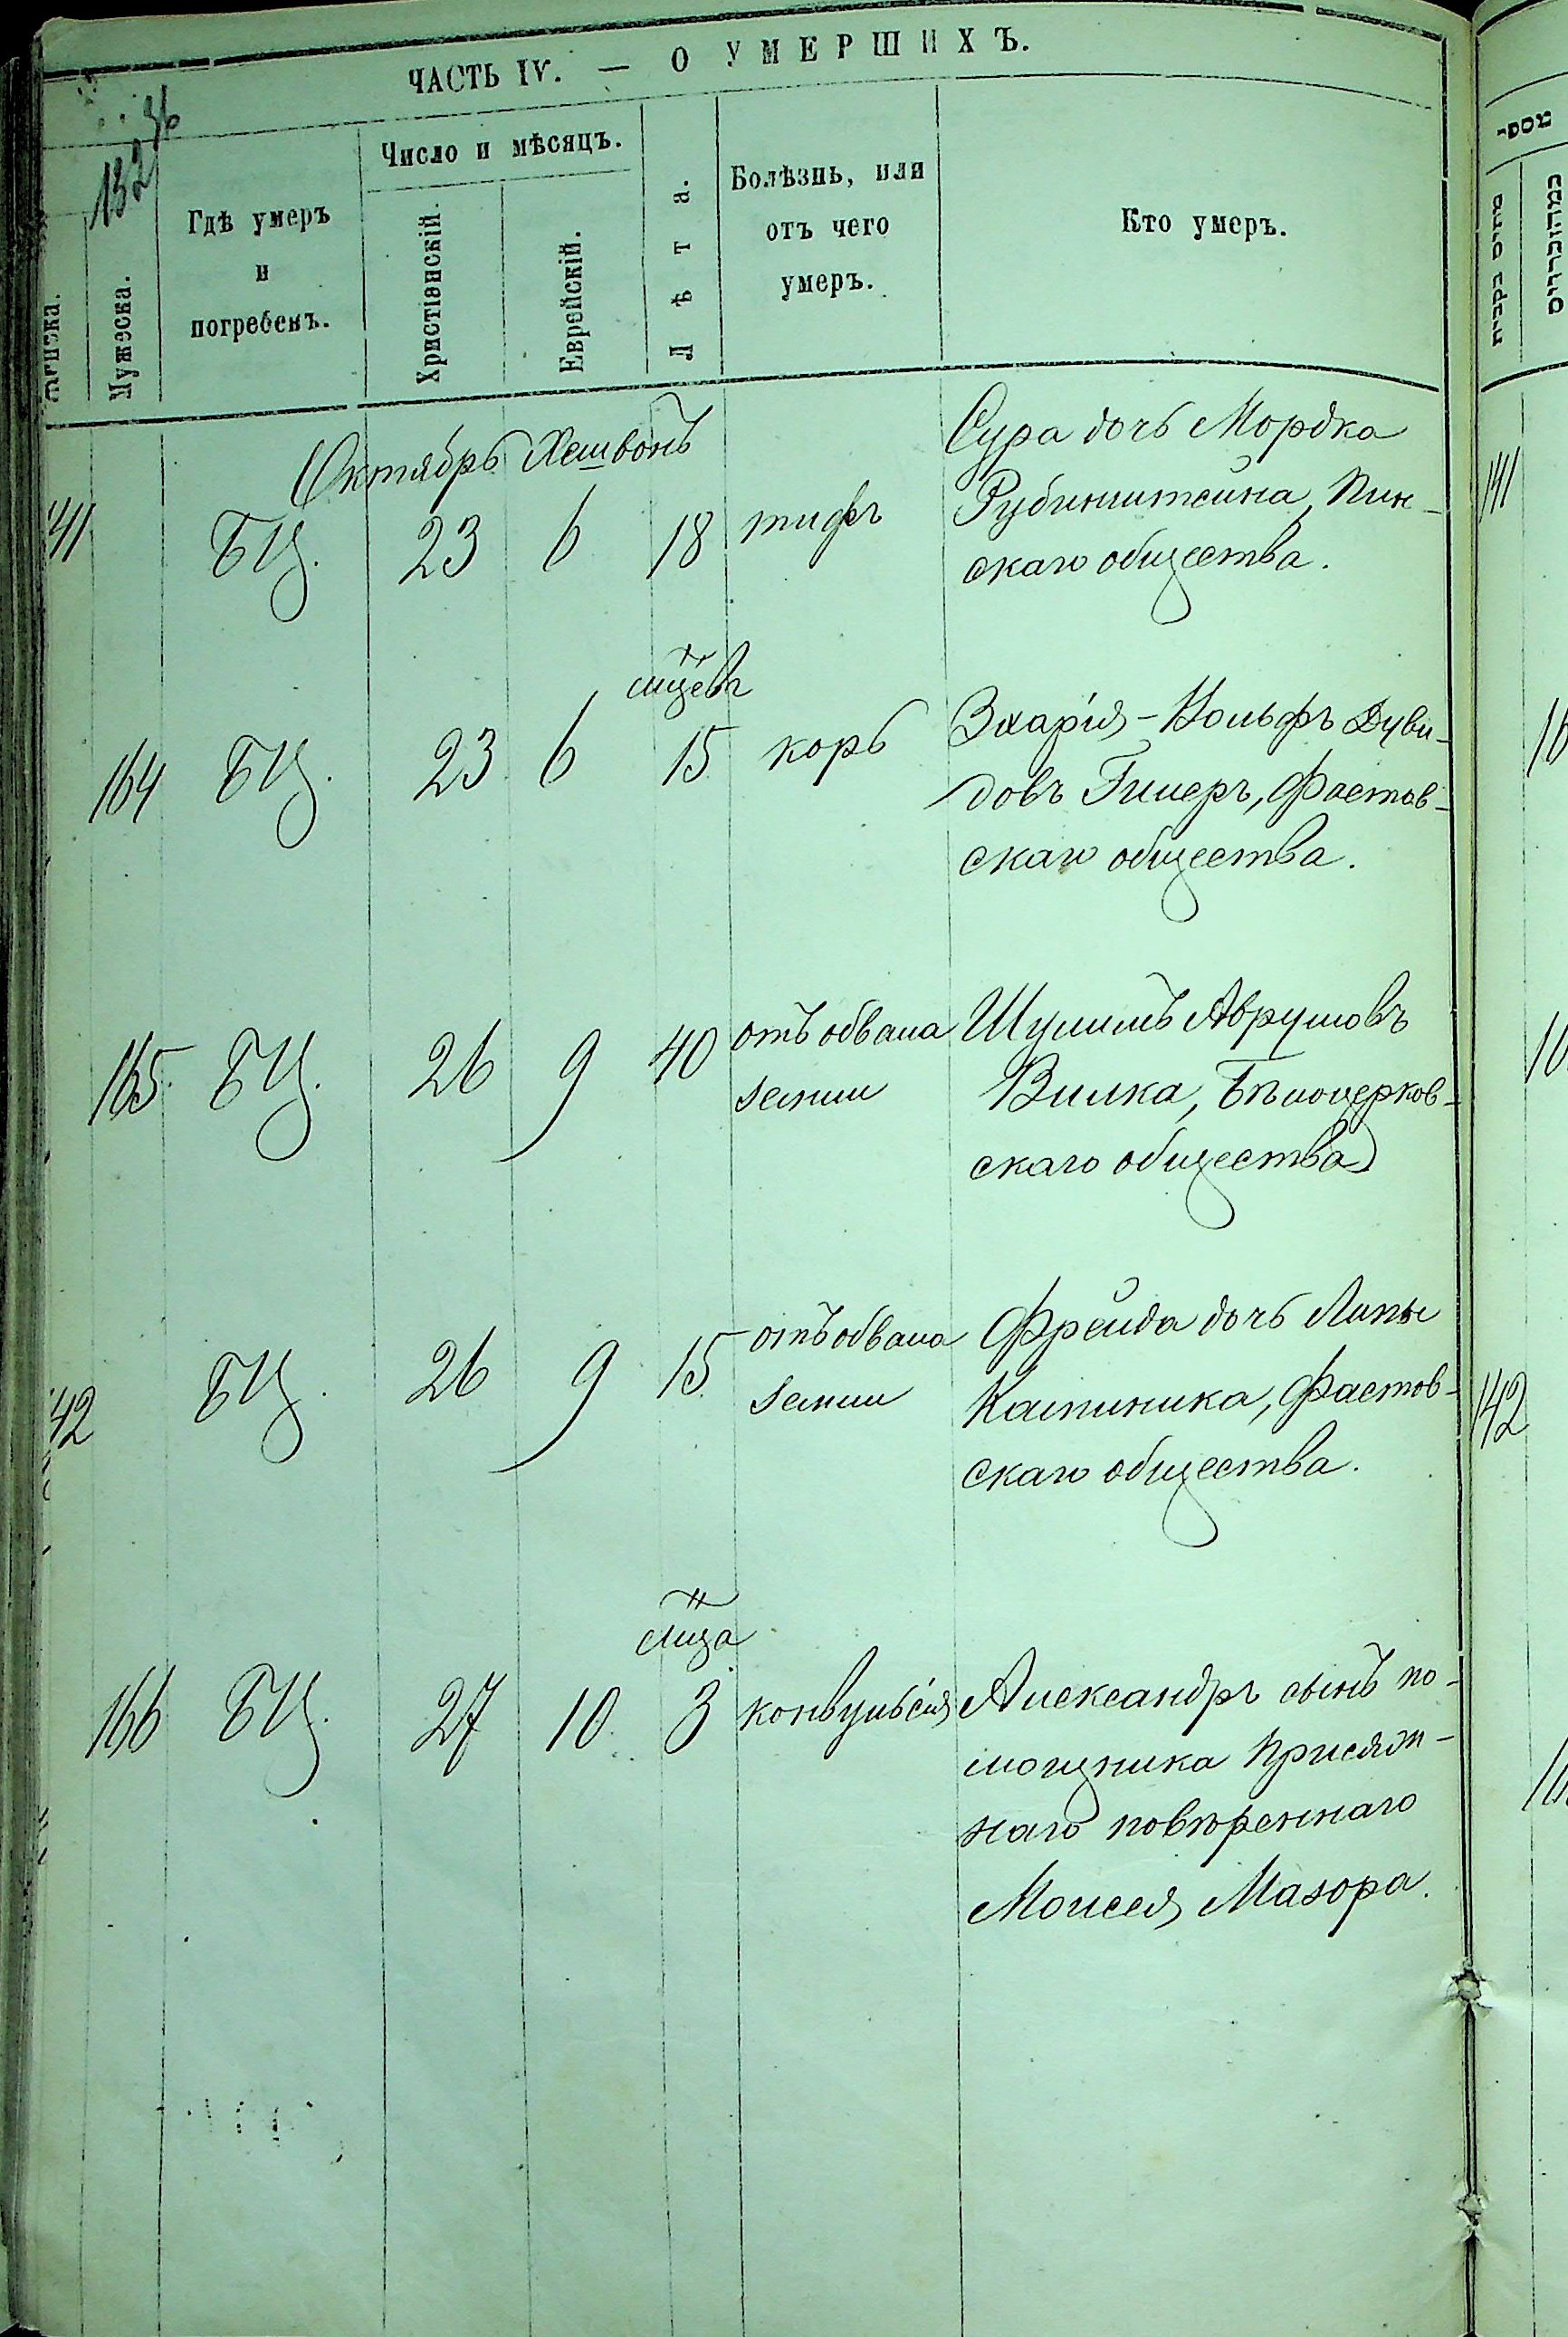 ЧАСТЬ IV. — О УМЕРШИХЪ.
132
Мужеска.
Гдѣ умеръ
и
погребенъ.
Число и мѣсяцъ.
Христіянскій.
Еврейскій.
Лѣта.
Болѣзнь, или
отъ чего
умеръ.
Кто умеръ.
Октябрь Хешвонъ
141 БЦ. 23 6 18 тифъ Сура дочь Мордка
Рубинштейна, Пин-
скаго общества.
мцевъ
164 БЦ. 23 6 15 корь Зхарія-Вольфъ Дуви-
довъ Гилеръ, Фастов-
скаго общества.
165 БЦ. 26 9 40 отъ обвала Шулимъ Аврумовъ
земли Вилка, Бѣлоцерков-
скаго общества
142 БЦ. 26 9 15 отъ обвала Фрейда дочь Липы
земли Калтиника, Фастов-
скаго общества.
мца
166 БЦ. 27 10 3 конвульсія Александръ сынъ по-
мощника присяж-
наго повѣреннаго
Моисея Мазора.
141
142